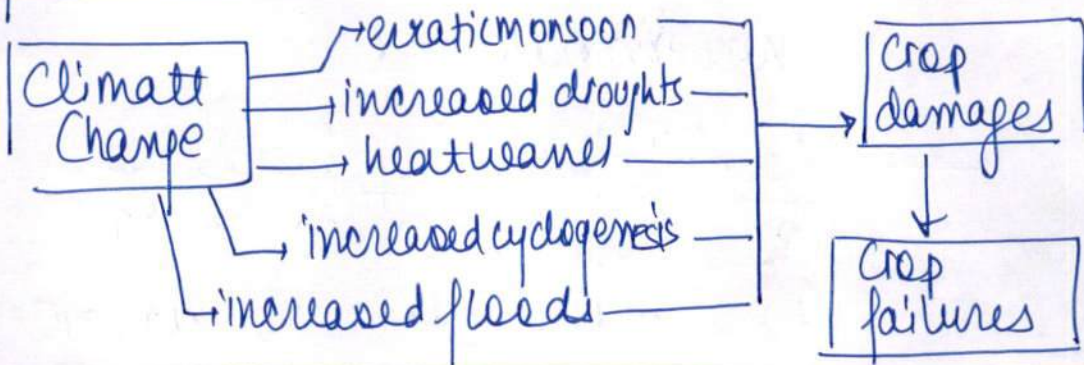 Climatt
Change
erraticmonsoon
increased droughts
heatwaves
increased cyclogenesis
increased floods
Crop
damages
Crop
failures